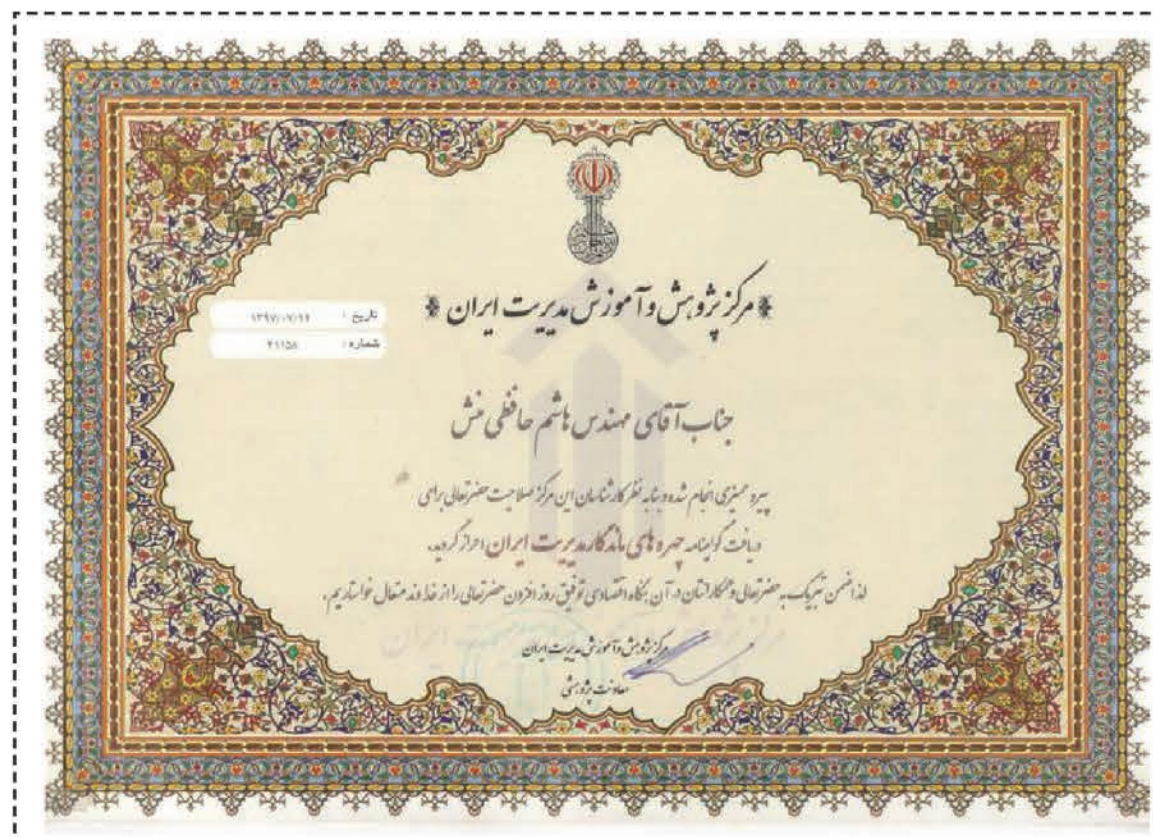 مرکز پژوهش و آموزش مدیریت ایران
تاریخ :
شماره : ۴۱۱۵۸
جناب آقای مهندس هاشم حافظی منش
پیرو ممیزی انجام شده و بنا به نظر کارشناسان این مرکز صلاحیت حضرتعالی برای
دریافت گواینامه چهره های ماندگار مدیریت ایران احراز گردید.
لذا ضمن تبریک به حضرتعالی و همکارانتان در آن بنگاه اقتصادی توفیق روز افزون حضرتعالی را از خداوند متعال خواستاریم .
مرکز پژوهش و آموزش مدیریت ایران
معاونت پژوهشی